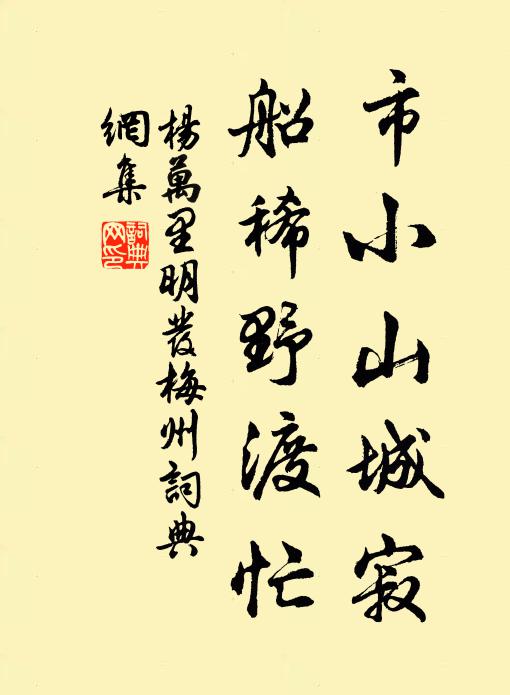 市小山城寂
船稀野渡忙
楊萬里明發梅州詞典
網集
詞典
网印